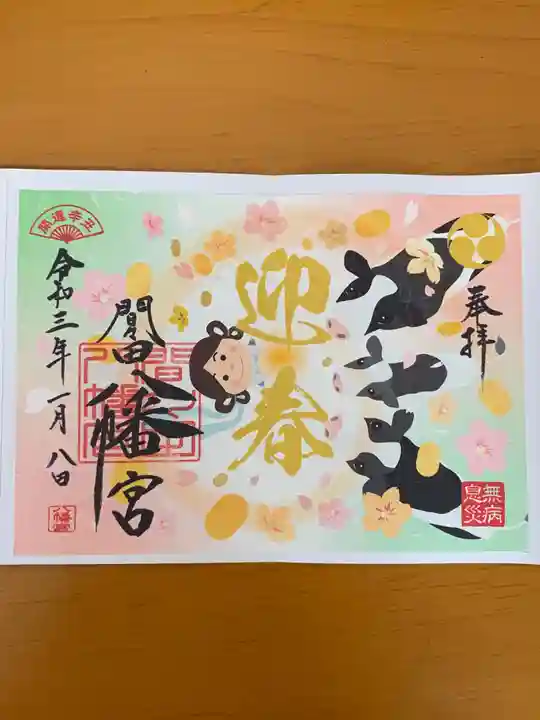 奉拝
無病
息災
迎春
間田八幡宮
開運辛丑
令和三年一月八日